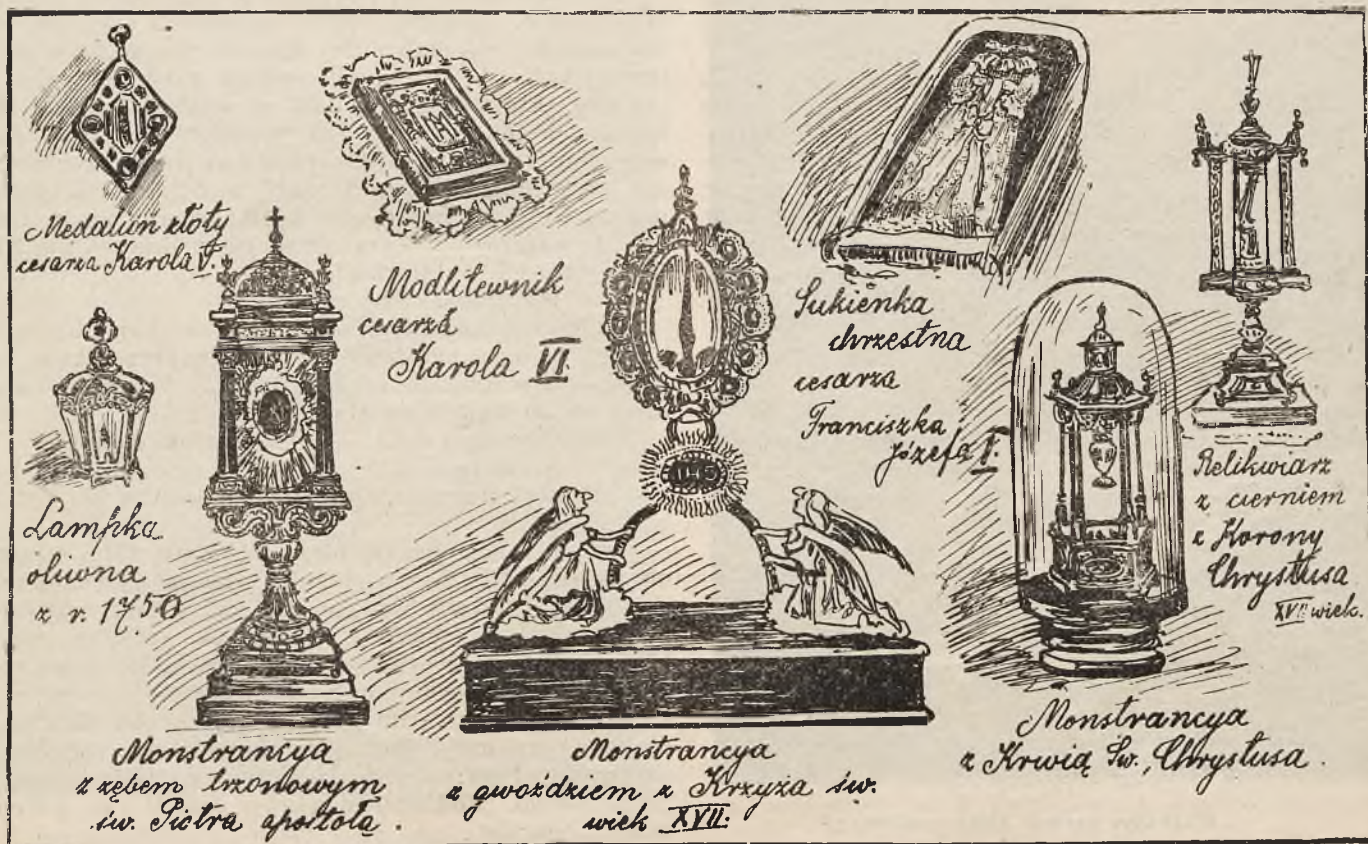 Medalion złoty
cesarza Karola V.
Modlitewnik
cesarza
Karola VI
Sukienka
chrzestna
cesarza
Franciszka
Józefa I.
Relikwiarz
z cierniem
z Korony
Chrystusa
XVII wiek.
Lampka
oliwna
z r. 1750
Monstrancya
z zębem trzonowym
św. Piotra apostoła.
Monstrancya
z gwoździem z Krzyża św.
wiek XVII.
Monstrancya
z Krwią Św. Chrystusa.
IHS